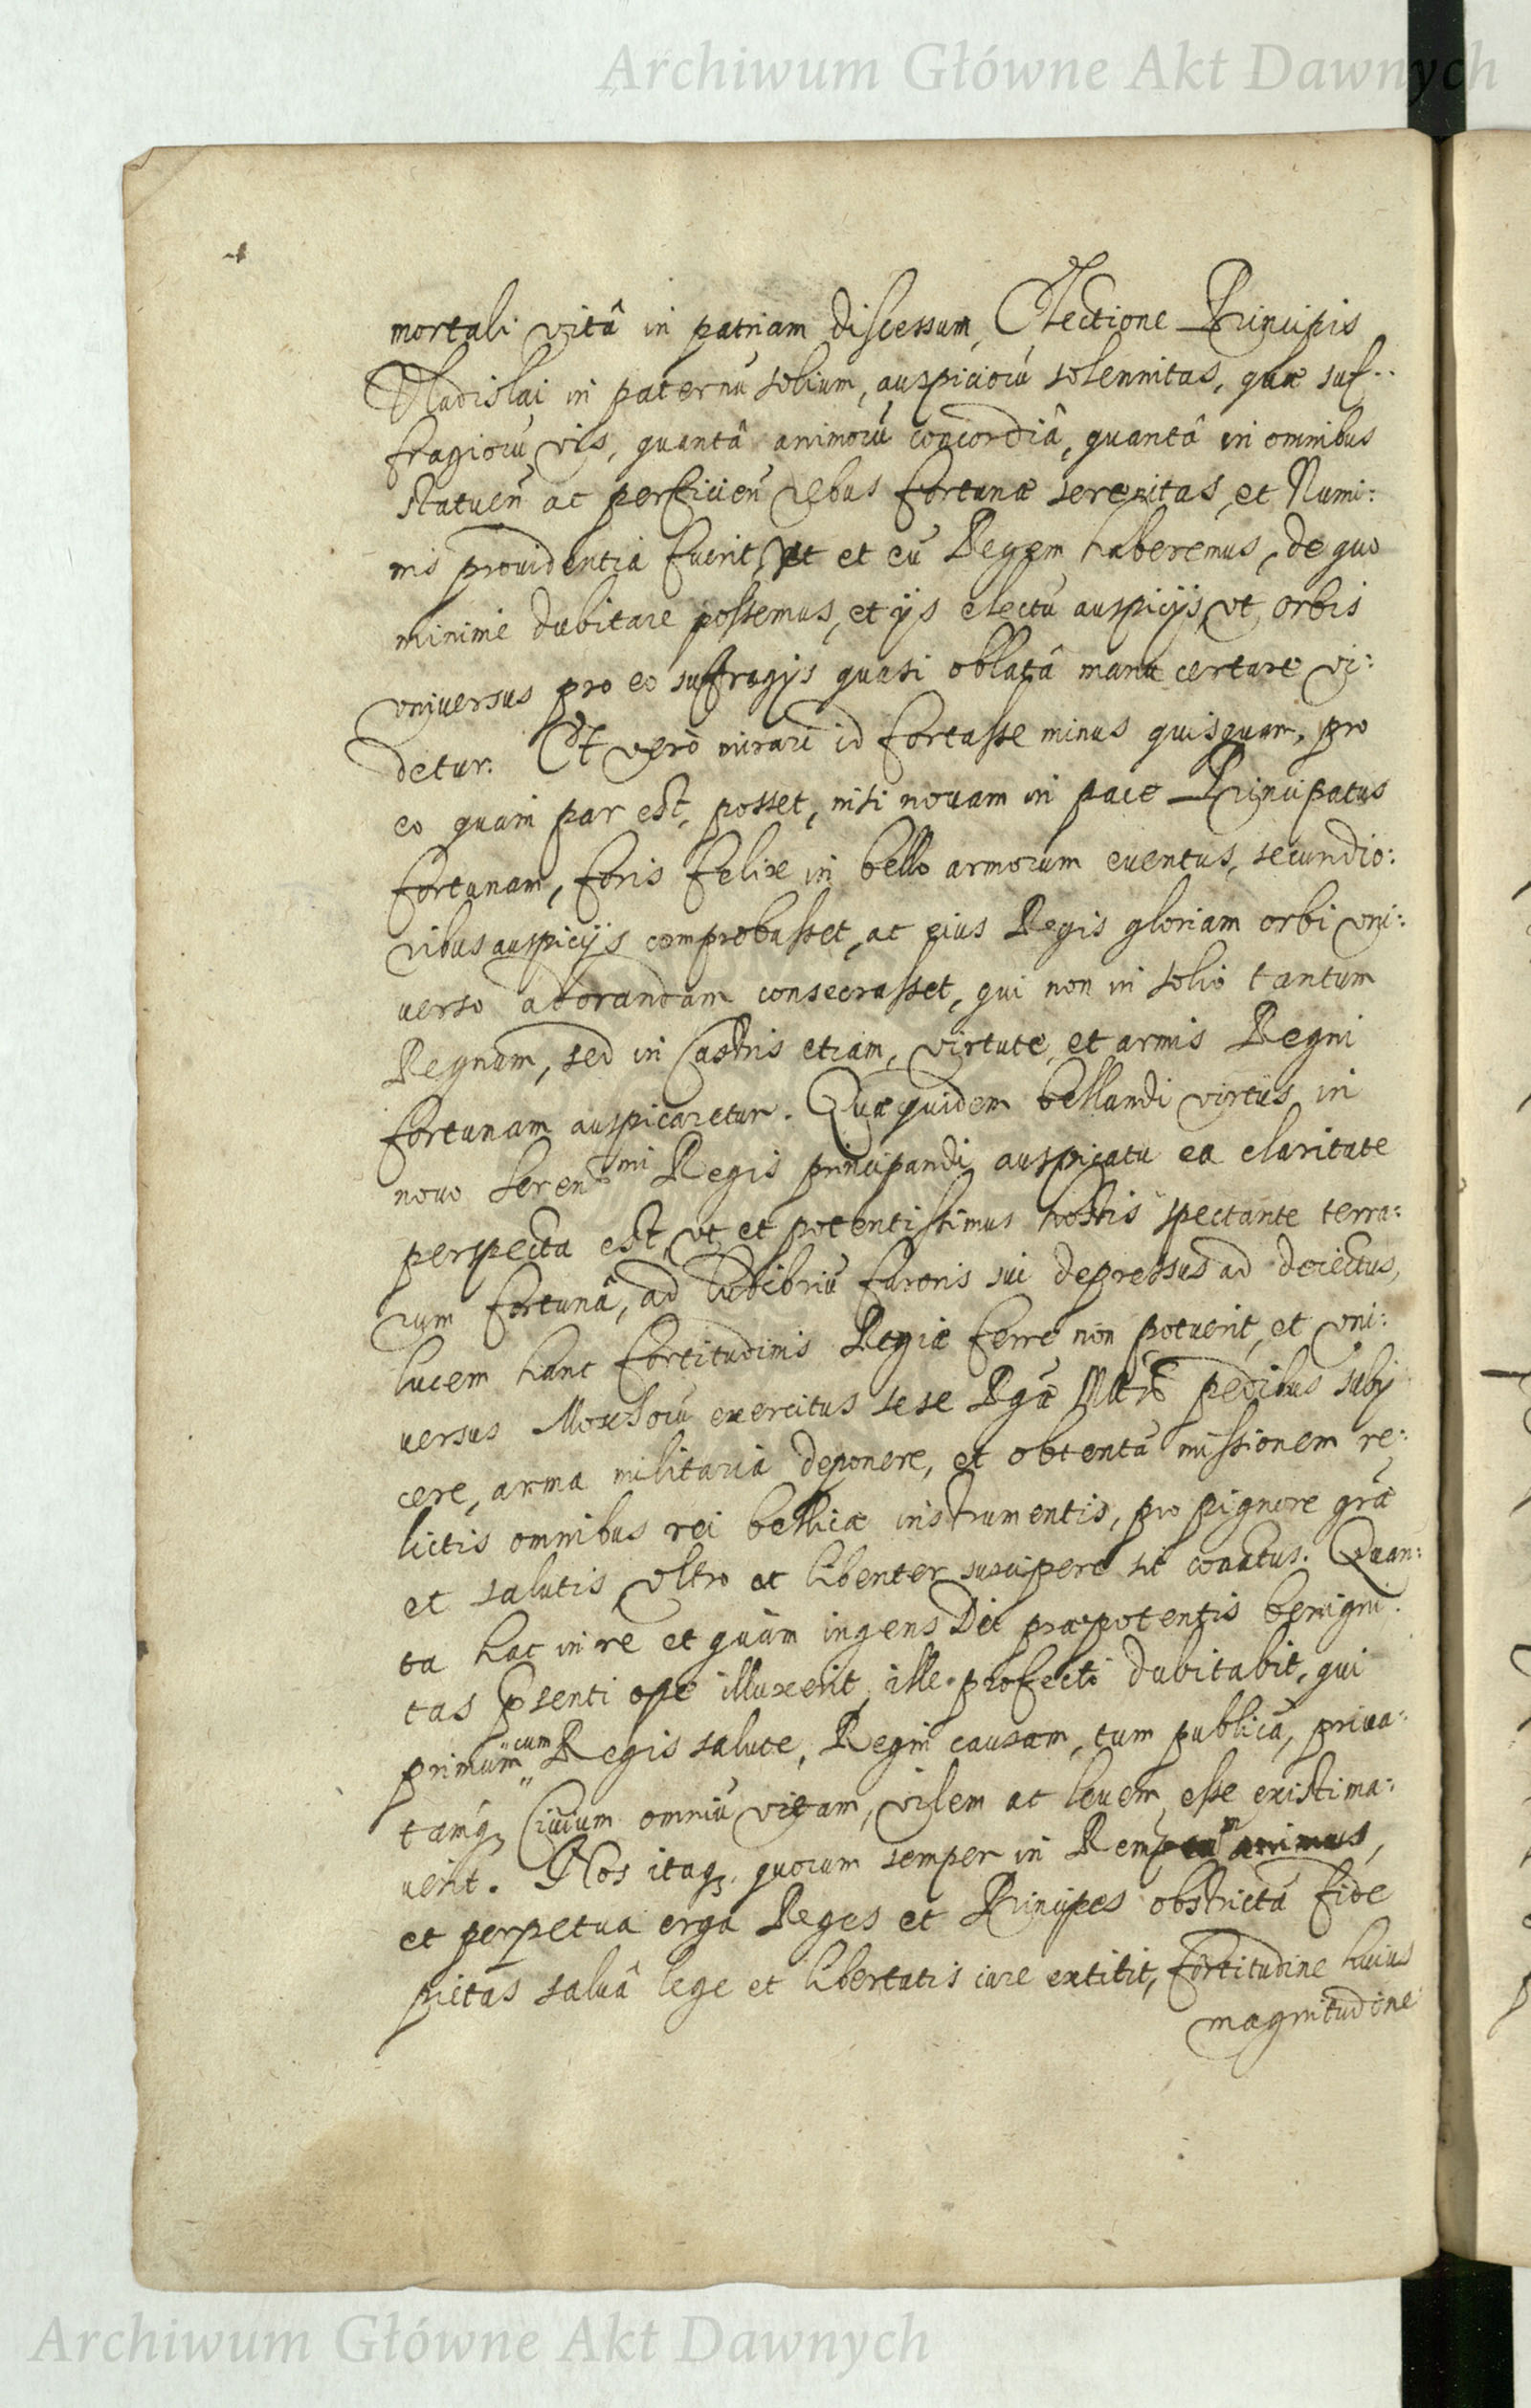 Archiwum Główne Akt Dawnych
mortali vitâ in patriam discessum, Electione Principis
Vladislai in paternū solium, auspiciorū solennitas, quæ suf-
fragiorū vis, quantâ animorū concordiâ, quantâ in omnibus
statuen̄ ac perficien̄ rebus fortunæ serenitas, et Numi:
nis prouidentia fuerit, vt et eū Regem haberemus, de quo
minime dubitare possemus, et ijs electū auspicijs, vt orbis
vniversus pro eo suffragijs quasi oblatâ manu certare vi:
detur. Et verò mirari id fortasse minus quisquam, pro
eo quam par est, posset, nisi novam in pace Principatus
fortunam, foris felix in bello armorum eventus, secundio:
ribus auspicijs comprobasset, ac eius Regis gloriam orbi vni:
verso adorandam consecrasset, qui non in solio tantum
Regnum, sed in Castris etiam, virtute et armis Regni
fortunam auspicaretur. Quæ quidem bellandi virtus in
novo Seren^mi Regis principandi auspicatu ea claritate
perspecta est, vt et potentissimus hostis spectante terra:
rum fortunâ, ad ludibriū furoris sui depressus ad deiectus,
lucem hanc fortitudinis Regiæ ferre non potuerit, et vni:
versus Moschorū exercitus sese Rgæ Mtis pedibus subij
cere, arma militaria deponere, et obtentâ missionem re:
lictis omnibus rei bellicæ instrumentis, pro pignore græ
et salutis vltro ac libenter suscipere sit coactus. Quan:
ta hac in re et quàm ingens Dei præpotentis benigni:
tas psenti ope illuxerit, ille profectò dubitabit, qui
primum cum Regis salute, Regni causam, tum publicā, priua:
tamq; Civium omniū vitam, vilem ac levem esse existima:
verit. Nos itaq; quorum semper in Remp animus,
et perpetua erga Reges et Principes obstrictâ fide
pietas salvâ lege et libertatis iure extitit, fortitudine huius
magnitudine
Archiwum Główne Akt Dawnych